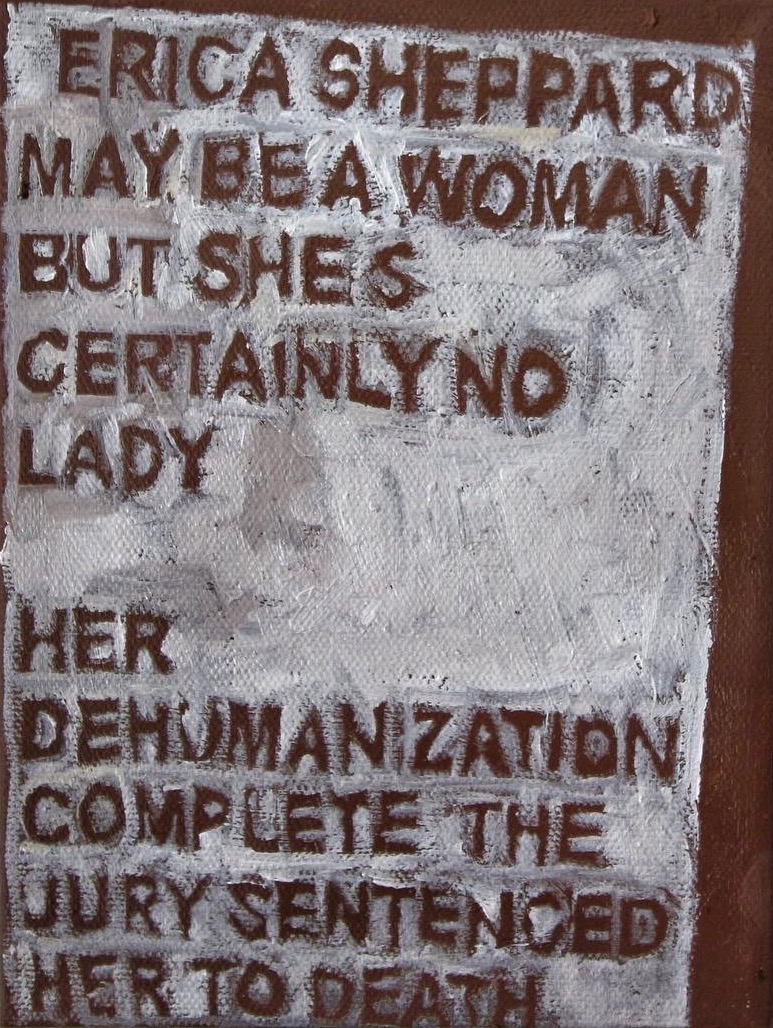 ERICA SHEPPARD
MAY BE A WOMAN
BUT SHE S
CERTAINLY NO
LADY
HER
DEHUMANIZATION
COMPLETE THE
JURY SENTENCED
HER TO DEATH